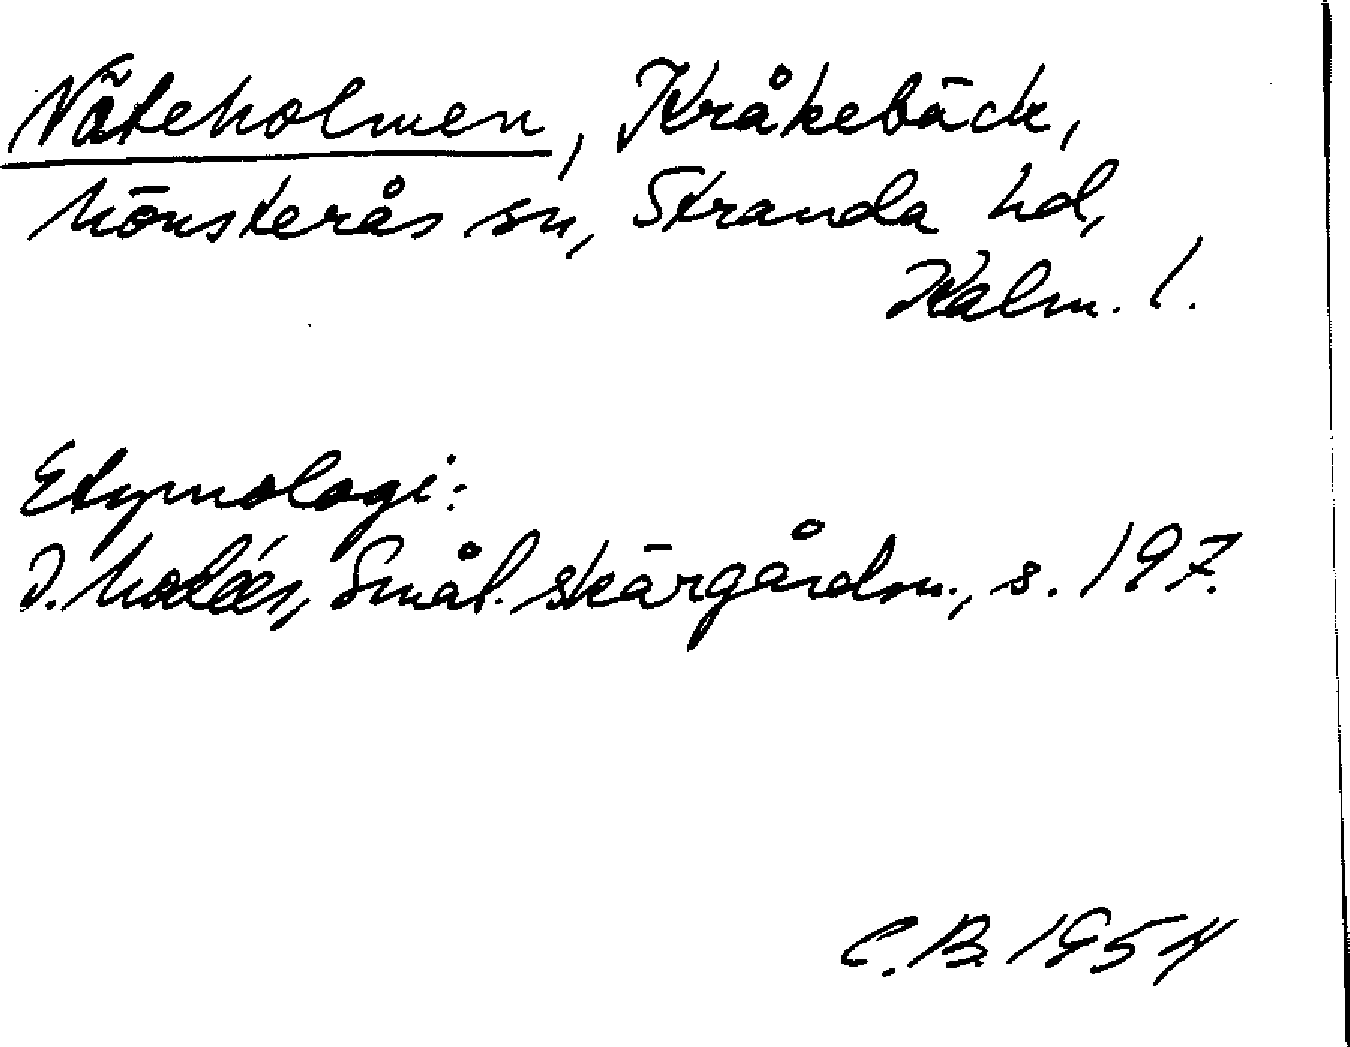 Näteholmen, Kråkebäck,
Mönsterås sn, Stranda hd,
Kalm. l.
Etymologi:
I. Modéer, Smål. skärgårdsn., s. 197.
C.B. 1954